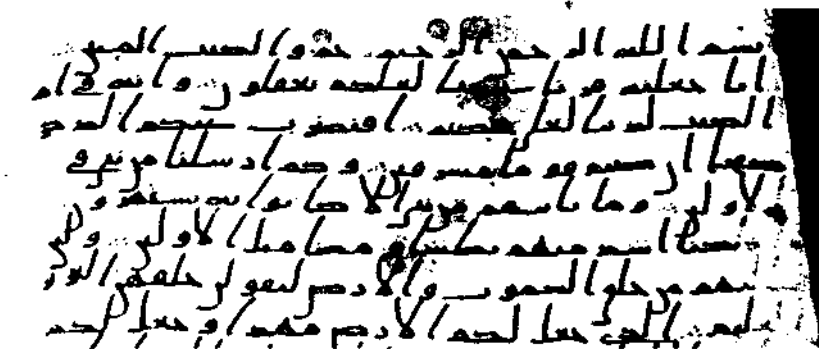 بسم الله الرحمن الرحيم حم والكتب المبين
انا جعلنه قرنا عربيا لعلكم تعقلون وانه في ام
الكتب لدينا لعلي حكيم افنضرب عنكم الذكر
صفحا ان كنتم قوما مسرفين وكم ارسلنا من نبي في
الاولين وما ياتيهم من نبي الا كانوا به يستهزون
اشد منهم بطشا ومضى مثل الاولين ولئن
سالتهم من خلق السموت والارض ليقولن خلقهن العز
العليم الذي جعل لكم الارض مهدا وجعل لكم